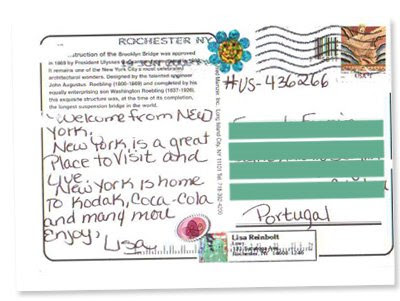 ROCHESTER NY
struction of the Brooklyn Bridge was approved
in 1869 by President Ulysses
It remains one of the New York City's most celebrated
architectural wonders. Designed by the talented engineer
John Augustus Roebling (1806-1869) and completed by his
equally enterprising son Washington Roebling (1837-1926),
this exquisite structure was, at the time of its completion,
the longest suspension bridge in the world.
#US-436266
Welcome from New
York.
New York is a great
Place to Visit and
Live.
New York is home
To Kodak, Coca-Cola
and many more
Enjoy,
Lisa
Long Island City, NY 11101
Portugal
Lisa Reinbolt
Rochester, NY